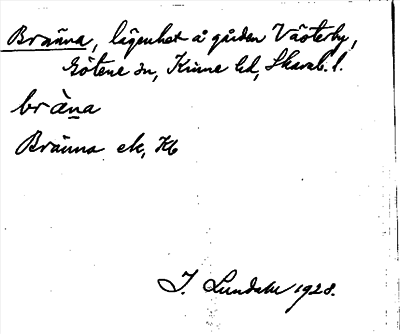 Bränna, lägenhet å gården Västerby,
Götene sn, Kinne hd, Skarab. l.
bräna
Bränna ek, Kb
I. Lundahl 1928.